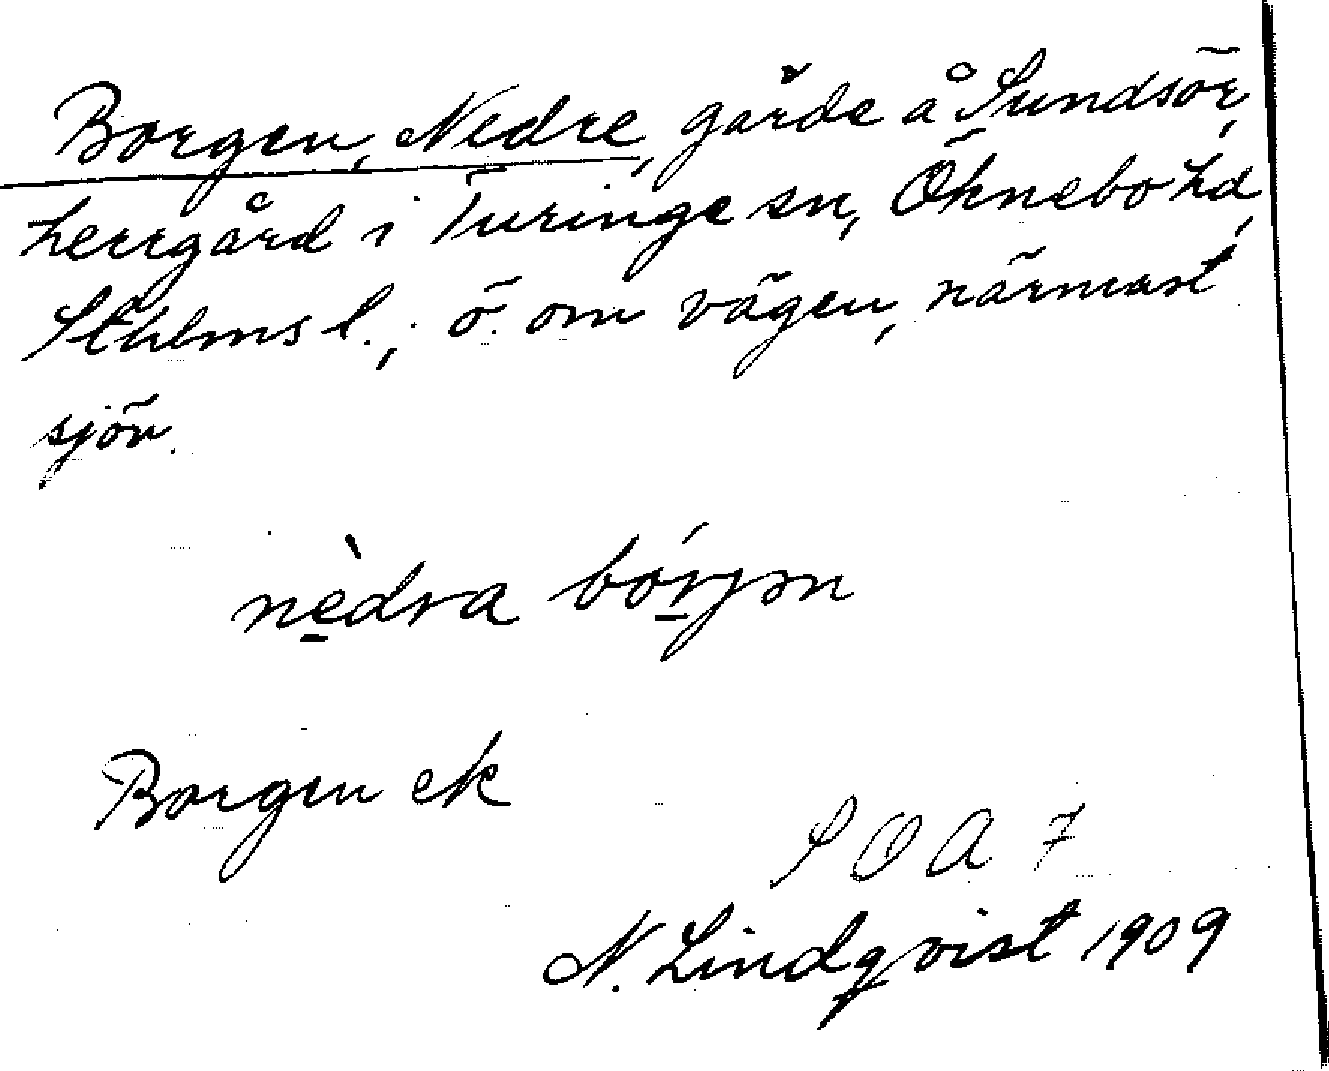 Borgen, Nedre, gärde å Sundsör,
herrgård i Turinge sn, Öknebo hd,
Sthlms l., ö. om vägen, närmast
sjön.
nèdra bórjən
Borgen ek
SOA 7
N. Lindqvist 1909